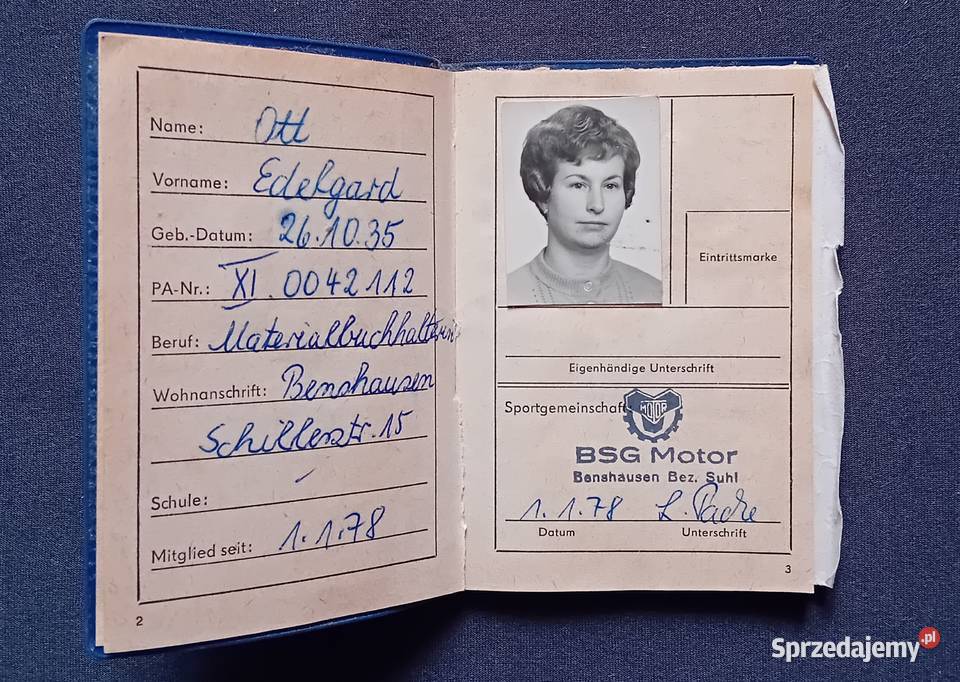 Name: Ott
Vorname: Edelgard
Geb.-Datum: 26.10.35
PA-Nr.: XI 0042112
Beruf: Materialbuchhalterin
Wohnanschrift: Benshausen
Schillerstr. 15
Schule: -
Mitglied seit: 1.1.78
2
Eintrittsmarke
Eigenhändige Unterschrift
Sportgemeinschaft
MOTOR
BSG Motor
Benshausen Bez. Suhl
1.1.78
Datum Unterschrift
3
Sprzedajemy.pl